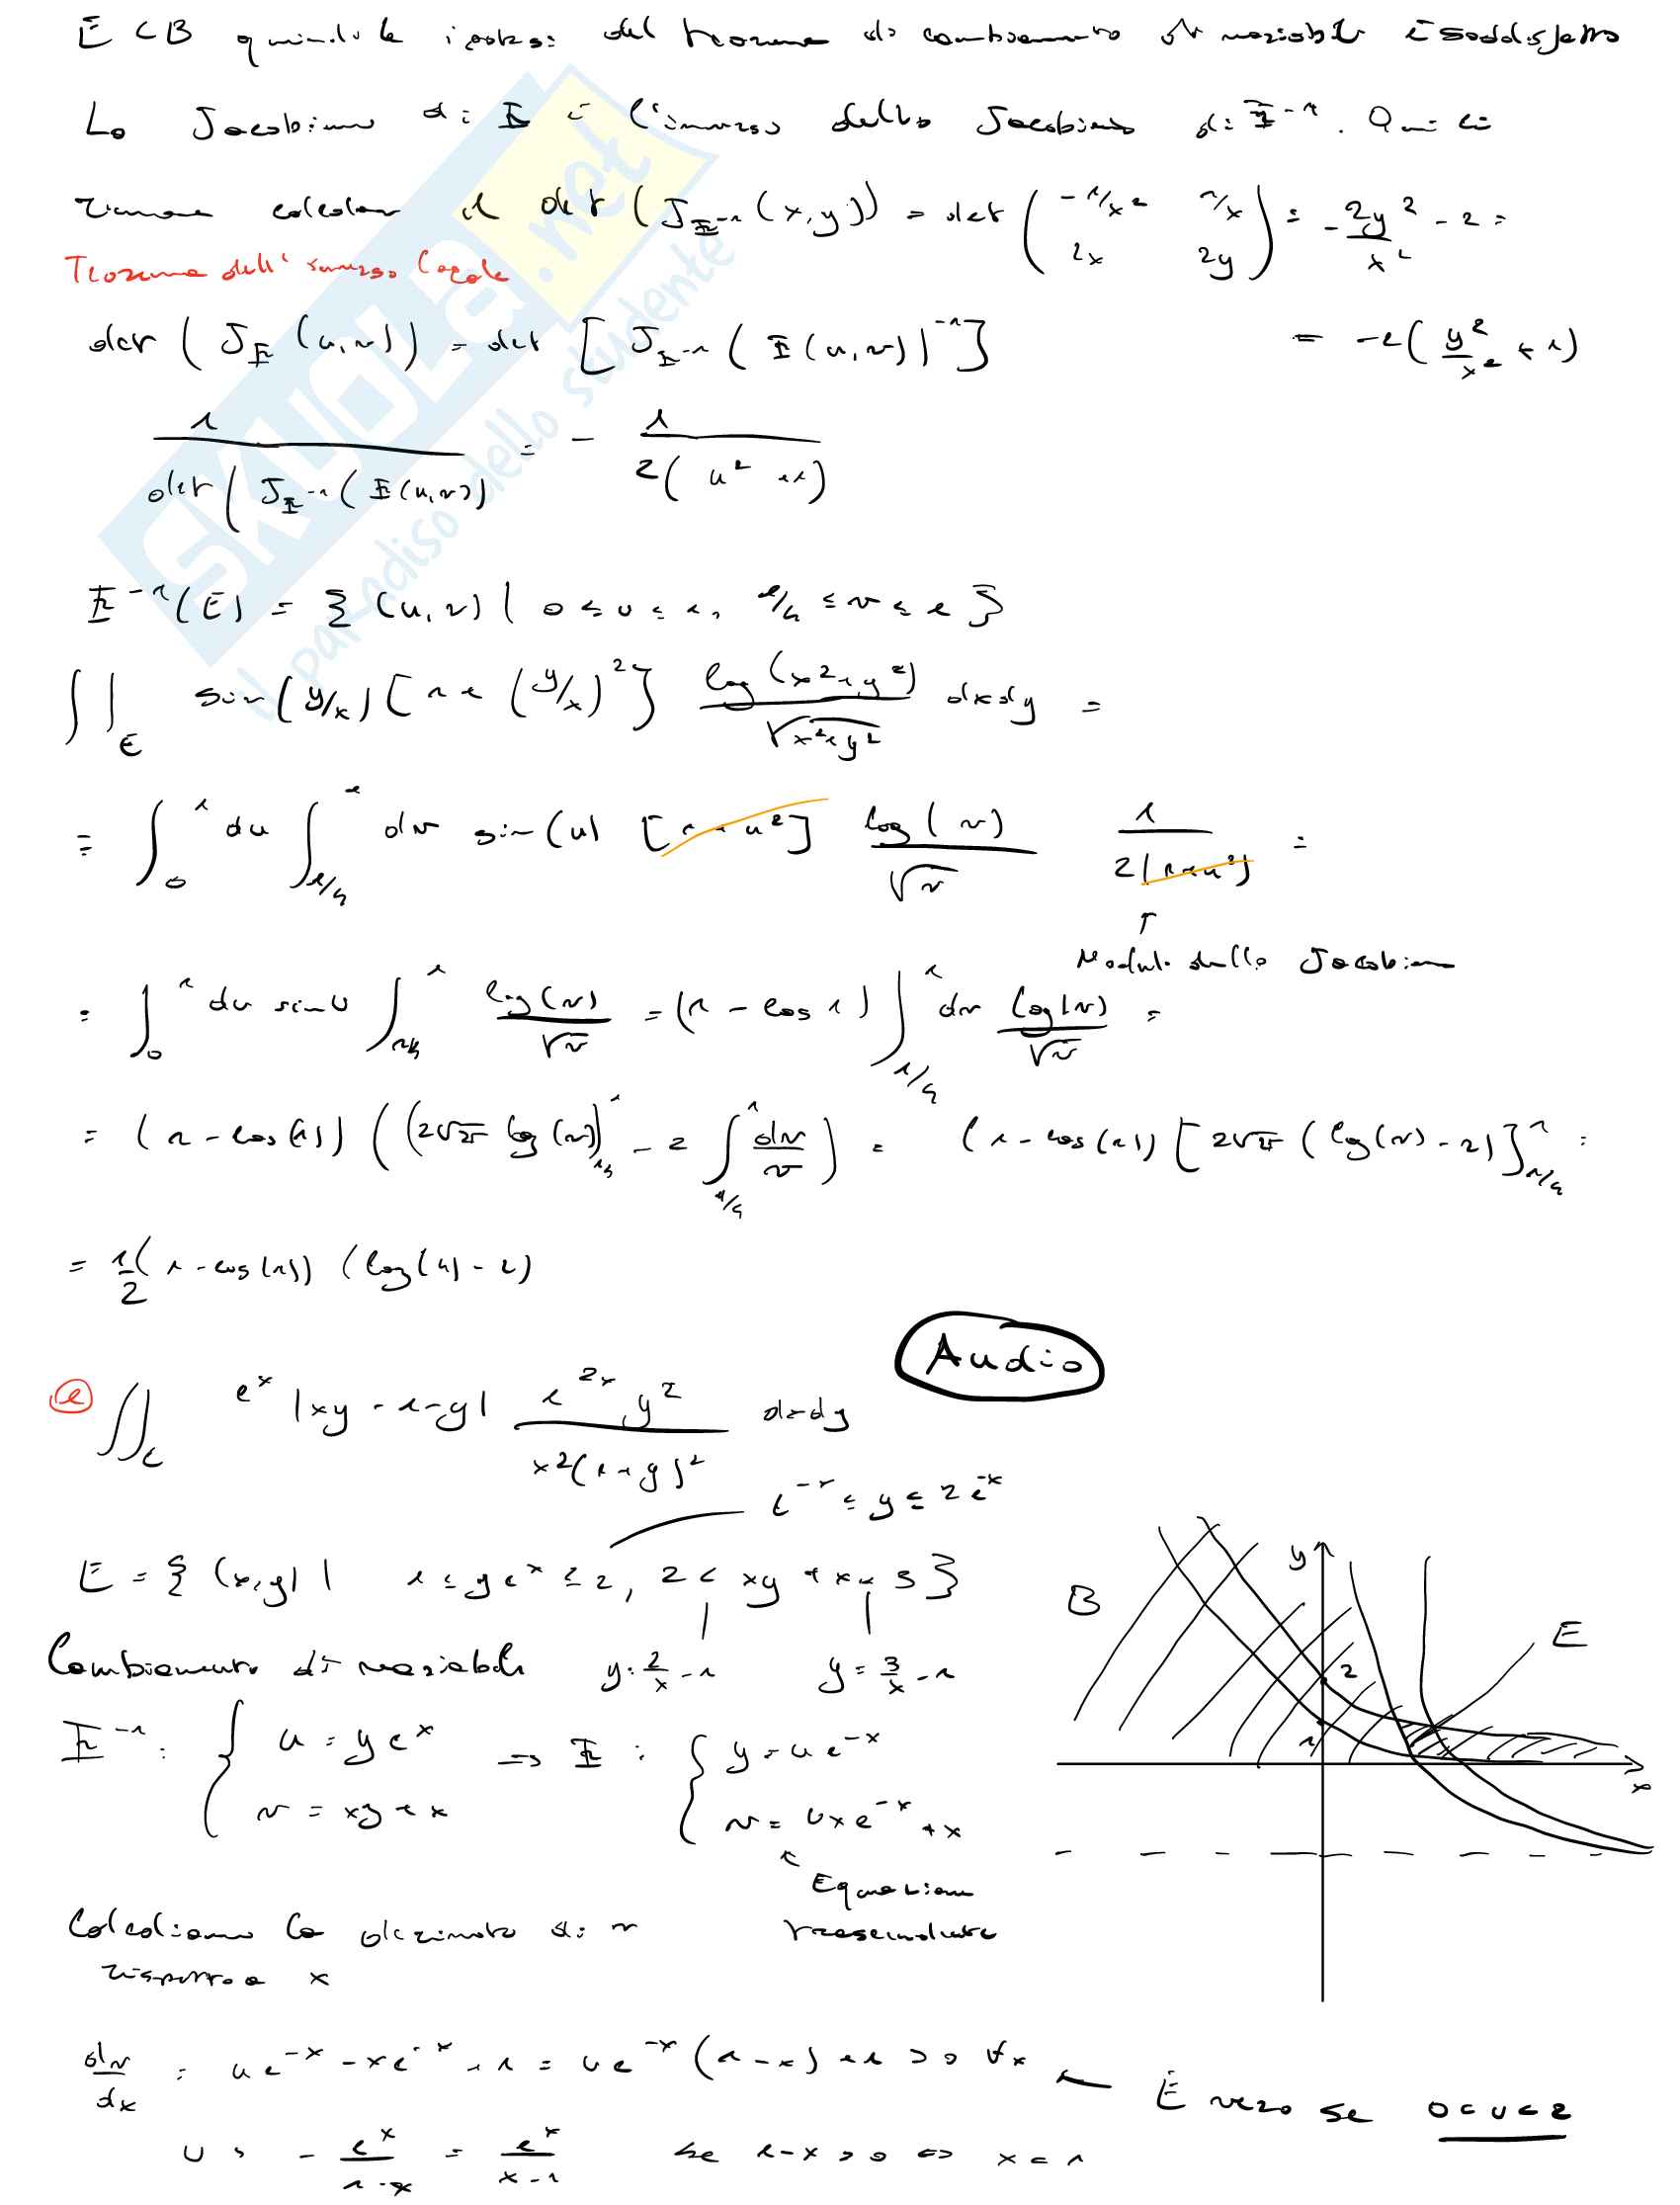 E ⊂ B quindi le ipotesi del teorema di cambiamento di variabili è soddisfatto
Lo Jacobiano di Φ è l'inverso dello Jacobiano di Φ⁻¹. Qui ci
rimane calcolare il det (J_Φ⁻¹(x,y)) = det ( -y/x² 1/x ; 2x 2y ) = -2y²/x² - 2 =
Teorema dell'inverso locale
det (J_Φ(u,v)) = det [J_Φ⁻¹(Φ(u,v))⁻¹] = -2(y²/x² + 1)
1/det(J_Φ⁻¹(Φ(u,v)) = - 1/2(u²+1)
Φ⁻¹(E) = {(u,v) | 0 ≤ u ≤ 1, 1/4 ≤ v ≤ 1}
∫∫_E sin(y/x) [1 + (y/x)²] log(x²+y²)/√x²+y² dxdy =
= ∫₀¹ du ∫_{1/4}^1 dv sin(u) [1+u²] log(v)/√v 1/2(1+u²) =
↑
Modulo dello Jacobiano
= ∫₀¹ du sin u ∫_{1/4}^1 log(v)/√v = (1 - cos 1) ∫_{1/4}^1 dv log(v)/√v =
= (1 - cos(1)) ((2√v log(v))_{1/4}^1 - 2 ∫_{1/4}^1 dv/v) = (1 - cos(1)) [2√v (log(v) - 2)]_{1/4}^1 =
= 1/2 (1 - cos(1)) (log(4) - 2)
Audio
② ∫∫_E e^x |xy - 1 - y| e^{2x} y²/x²(1+y)² dxdy
e^{-x} ≤ y ≤ 2e^{-x}
E = {(x,y) | 1 ≤ ye^x ≤ 2, 2 < xy + x < 3}
Cambiamento di variabili y = 2/x - 1 y = 3/x - 1
Φ⁻¹ : { u = ye^x ; v = xy + x => Φ : { y = ue^{-x} ; v = uxe^{-x} + x
Equazione
trascendente
B
E
y
x
2
1
Calcoliamo la derivata di v
rispetto a x
dv/dx = ue^{-x} - xe^{-x} + 1 = ue^{-x}(1-x) + 1 > 0 ∀x ← È vero se 0<u<2
u > - e^x/1-x = e^x/x-1 se 1-x > 0 ⇔ x < 1